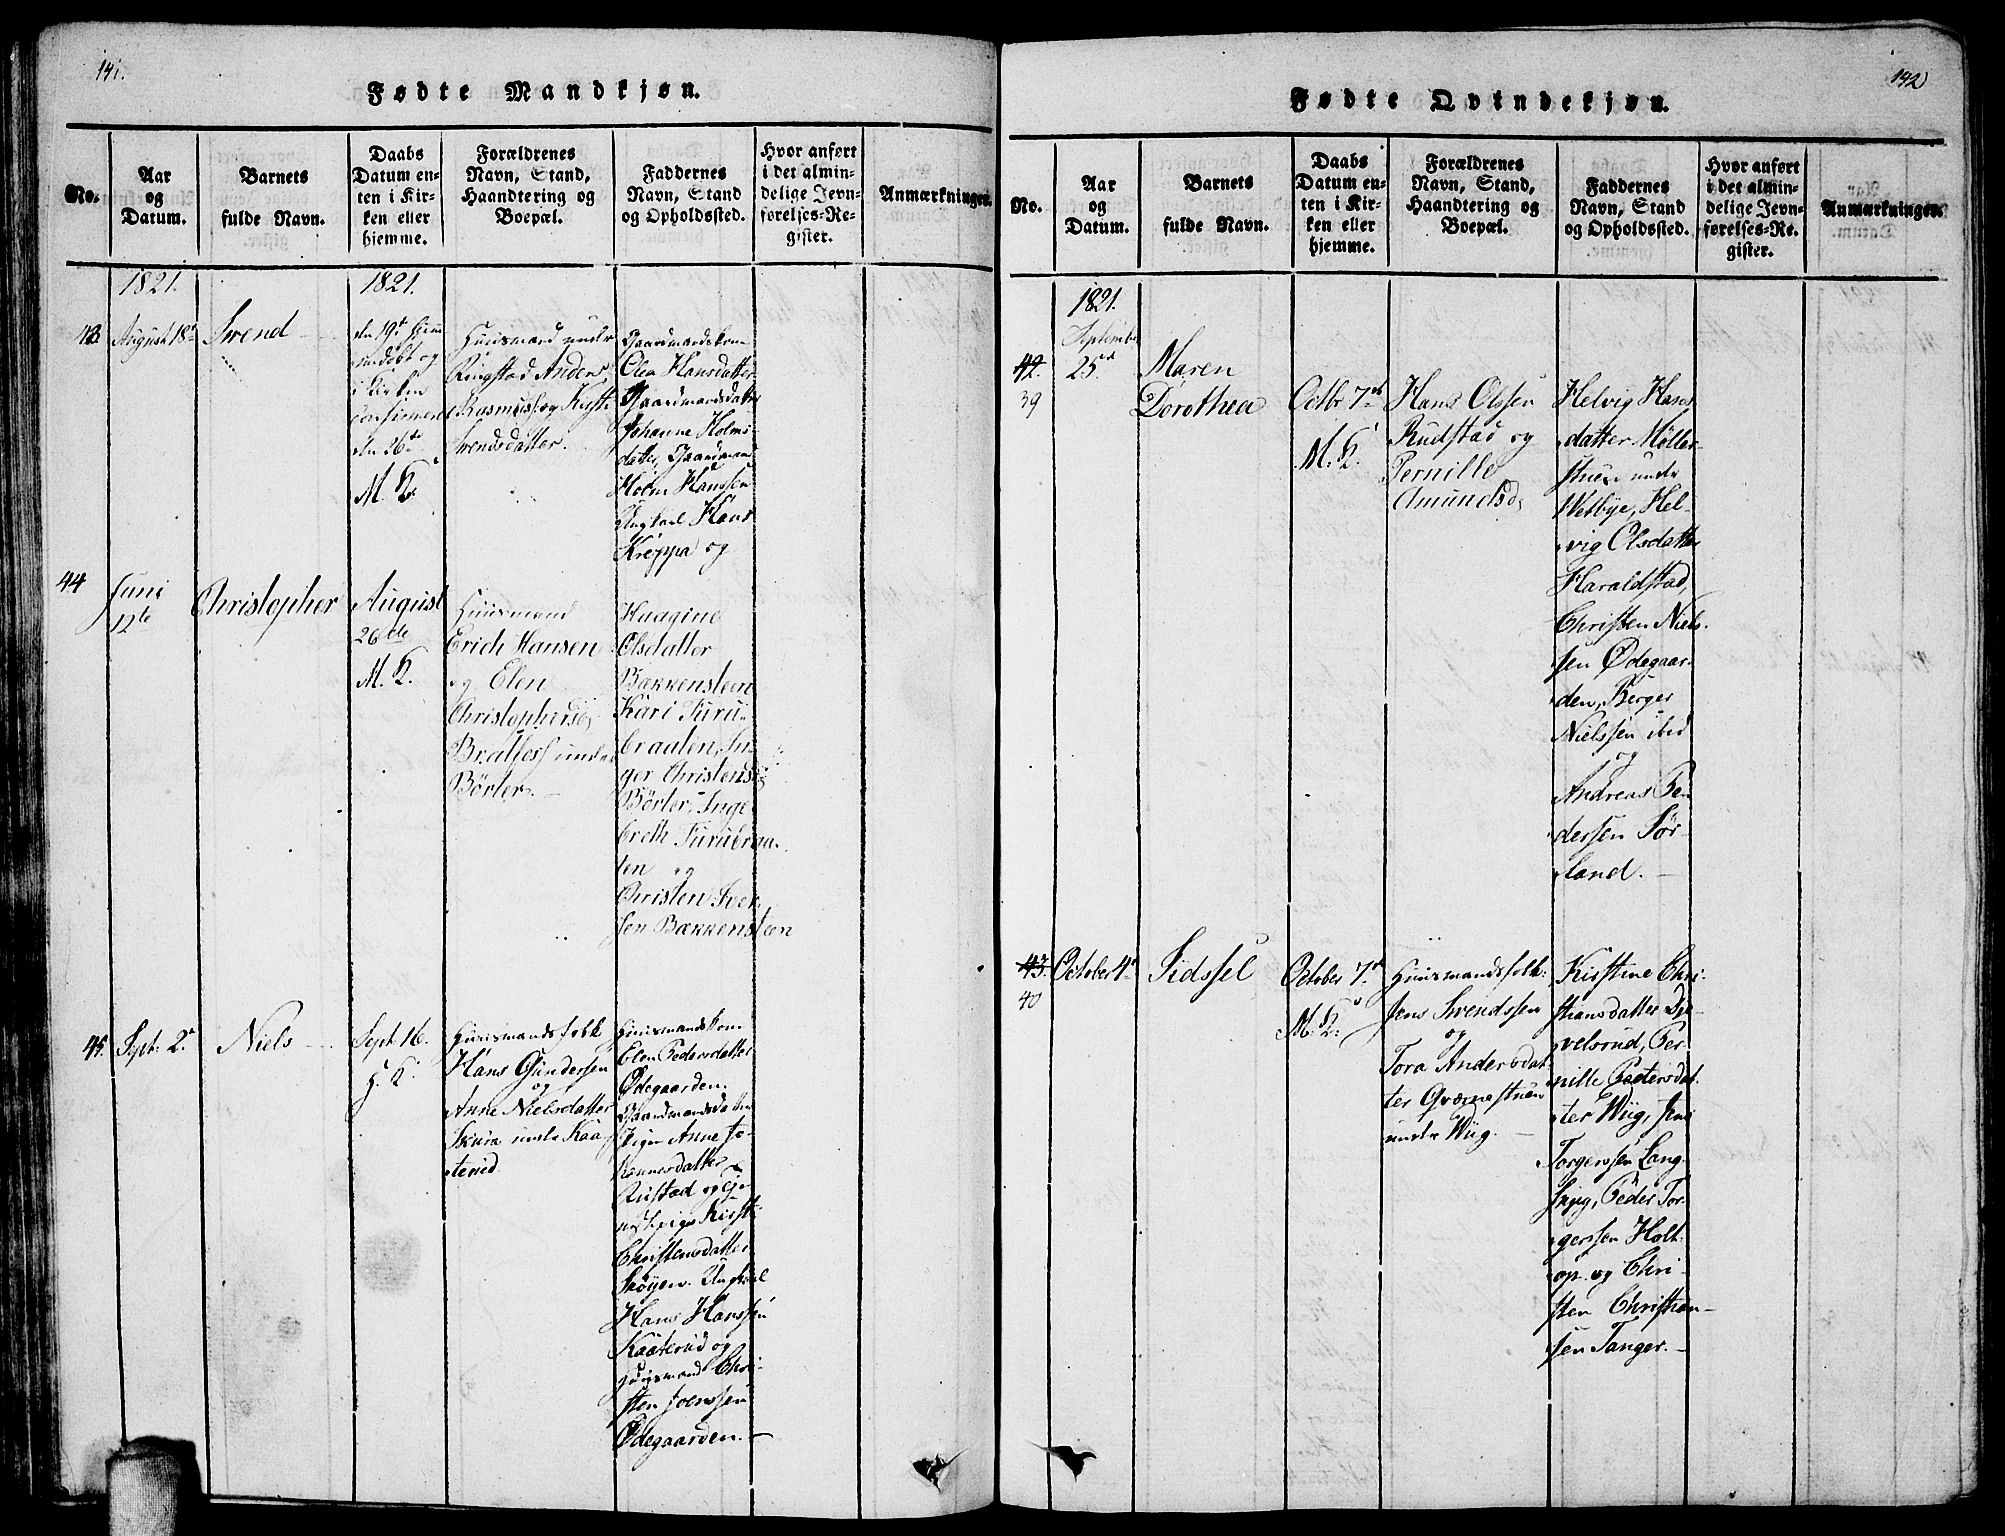 141.
Fødte Mandkjøn.
No.
Aar
og
Datum.
Barnets
fulde Navn.
Daabs
Datum en-
ten i Kir-
ken eller
hjemme.
Forældrenes
Navn, Stand,
Haandtering og
Boepæl.
Faddernes
Navn, Stand
og Opholdssted.
Hvor anført
i det almin-
delige Jevn-
førelses-Re-
gister.
Anmærkninger.
1821.
43.
August 18de
Svend
1821.
den 19de hjem
mdøbt og
i Kirken
confirmeret
den 26de
M. K.
Huusmand under
Ringstad Anders
Rasmuss. og Kysti
Svendsdatter.
Gaardmandskone
Olea Hansdatter
Gaardmandsdatter
Johanne Holms-
datter, Gaardmand
Holm Hanssen
Ungkarl Hans
Kreppa og
44
Juni
12te
Christopher
August
26de
M. K.
Huusmand
Erich Hansen
og Elen
Christophersd.
Bratfoss under
Börter.
Haagine
Olsdatter
Bækkensteen
Kari Furu-
braaten, In-
ger Christensd.
Börter, Inge
breth Furubraa-
ten og
Christen Iver-
sen Bækkensteen
45.
Sept: 2de
Niels
Sept 16.
H. K.
Huusmandsfolk
Hans Gundersen
og
Anne Nielsdatter
Skura under Kaa-
terud
Huusmandskone
Elen Pedersdatter
Ødegaarden.
Gaardmandsdatter
Pigen Anne Jo-
hannesdatter
Rustad og
Kirsti
Christensdatter
Skøyen. Ungkarl
Hans Hanssen
Kaaterud og
Huusmand Chri-
sten Joenssen
Ødegaarden.
142
Fødte Qvindekjøn.
No.
Aar
og
Datum.
Barnets
fulde Navn.
Daabs
Datum en-
ten i Kir-
ken eller
hjemme.
Forældrenes
Navn, Stand,
Haandtering og
Boepæl.
Faddernes
Navn, Stand
og Opholdssted.
Hvor anført
i det almin-
delige Jevn-
førelses-Re-
gister.
Anmærkninger.
1821.
42.
39
September
25de
Maren
Dorothea
Octbr 7de
M. K.
Hans Olssen
Rudstad og
Pernille
Amundsd.
Helvig Hans
datter Møller-
stuen under
Vestbye, Hel-
vig Olsdatter
Haraldstad,
Christen Niels-
sen Ødegaar-
den, Berger
Nielssen ibid
og
Andreas Pe-
dersen Sør-
land.
43.
40
October 4de
Sidssel
October 7de
M. K.
Huusmandsfolk:
Jens Svendssen
og
Tora Andersdat-
ter Qværnestuen
under Wiig.
Kirstine Chri-
stiansdatter Dy-
velsrud, Per-
nille Peetersdat-
ter Wiig, Jens
Torgerssen Lang-
bryg, Peder Tor-
gerssen Holt-
op. og Chri-
sten Christian-
sen Tanger.